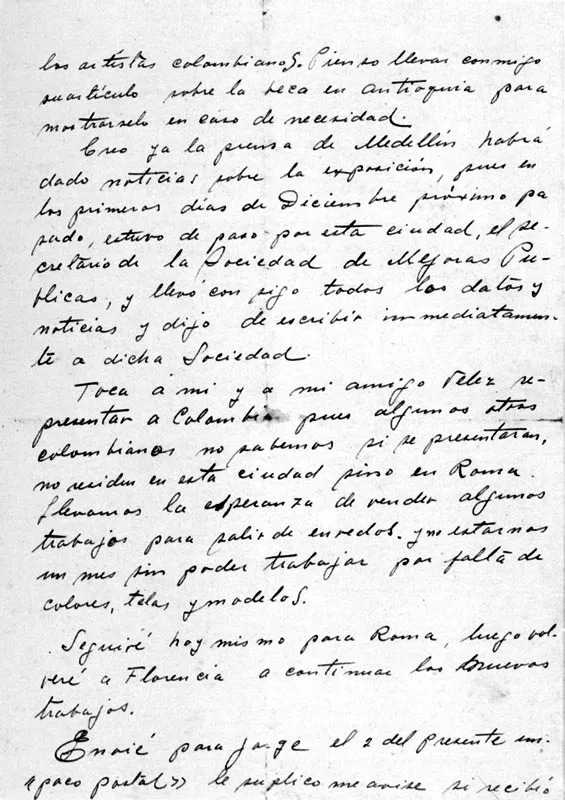 los artistas colombianos. Pienso llevar conmigo
su artículo sobre la beca en Antioquia para
mostrarselo en caso de necesidad.
Creo ya la prensa de Medellín habrá
dado noticias sobre la exposición, pues en
los primeros días de Diciembre próximo pa
sado, estuvo de paso por esta ciudad, el se-
cretario de la Sociedad de Mejoras Pú-
blicas, y llevó con sigo todos los datos y
noticias y dijo de escribir immediatamen-
te a dicha Sociedad.
Toca a mi y a mi amigo Velez re-
presentar a Colombia pues algunos otros
colombianos no sabemos si se presentaran,
no residen en esta ciudad sino en Roma.
Llevamos la esperanza de vender algunos
trabajos para salir de enredos. y no estarnos
un mes sin poder trabajar por falta de
colores, telas y modelos.
Seguiré hoy mismo para Roma, luego vol-
veré a Florencia a continuar los nuevos
trabajos.
Envié para Jorge el 2 del presente un
"paco postal" le suplico me avise si recibió